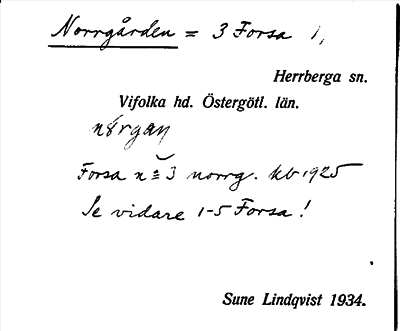 Norrgården = 3 Forsa 1,
Herrberga sn.
Vifolka hd. Östergötl. län.
Forsa n = 3 norrg. kb 1925
Se vidare 1-5 Forsa!
Sune Lindqvist 1934.